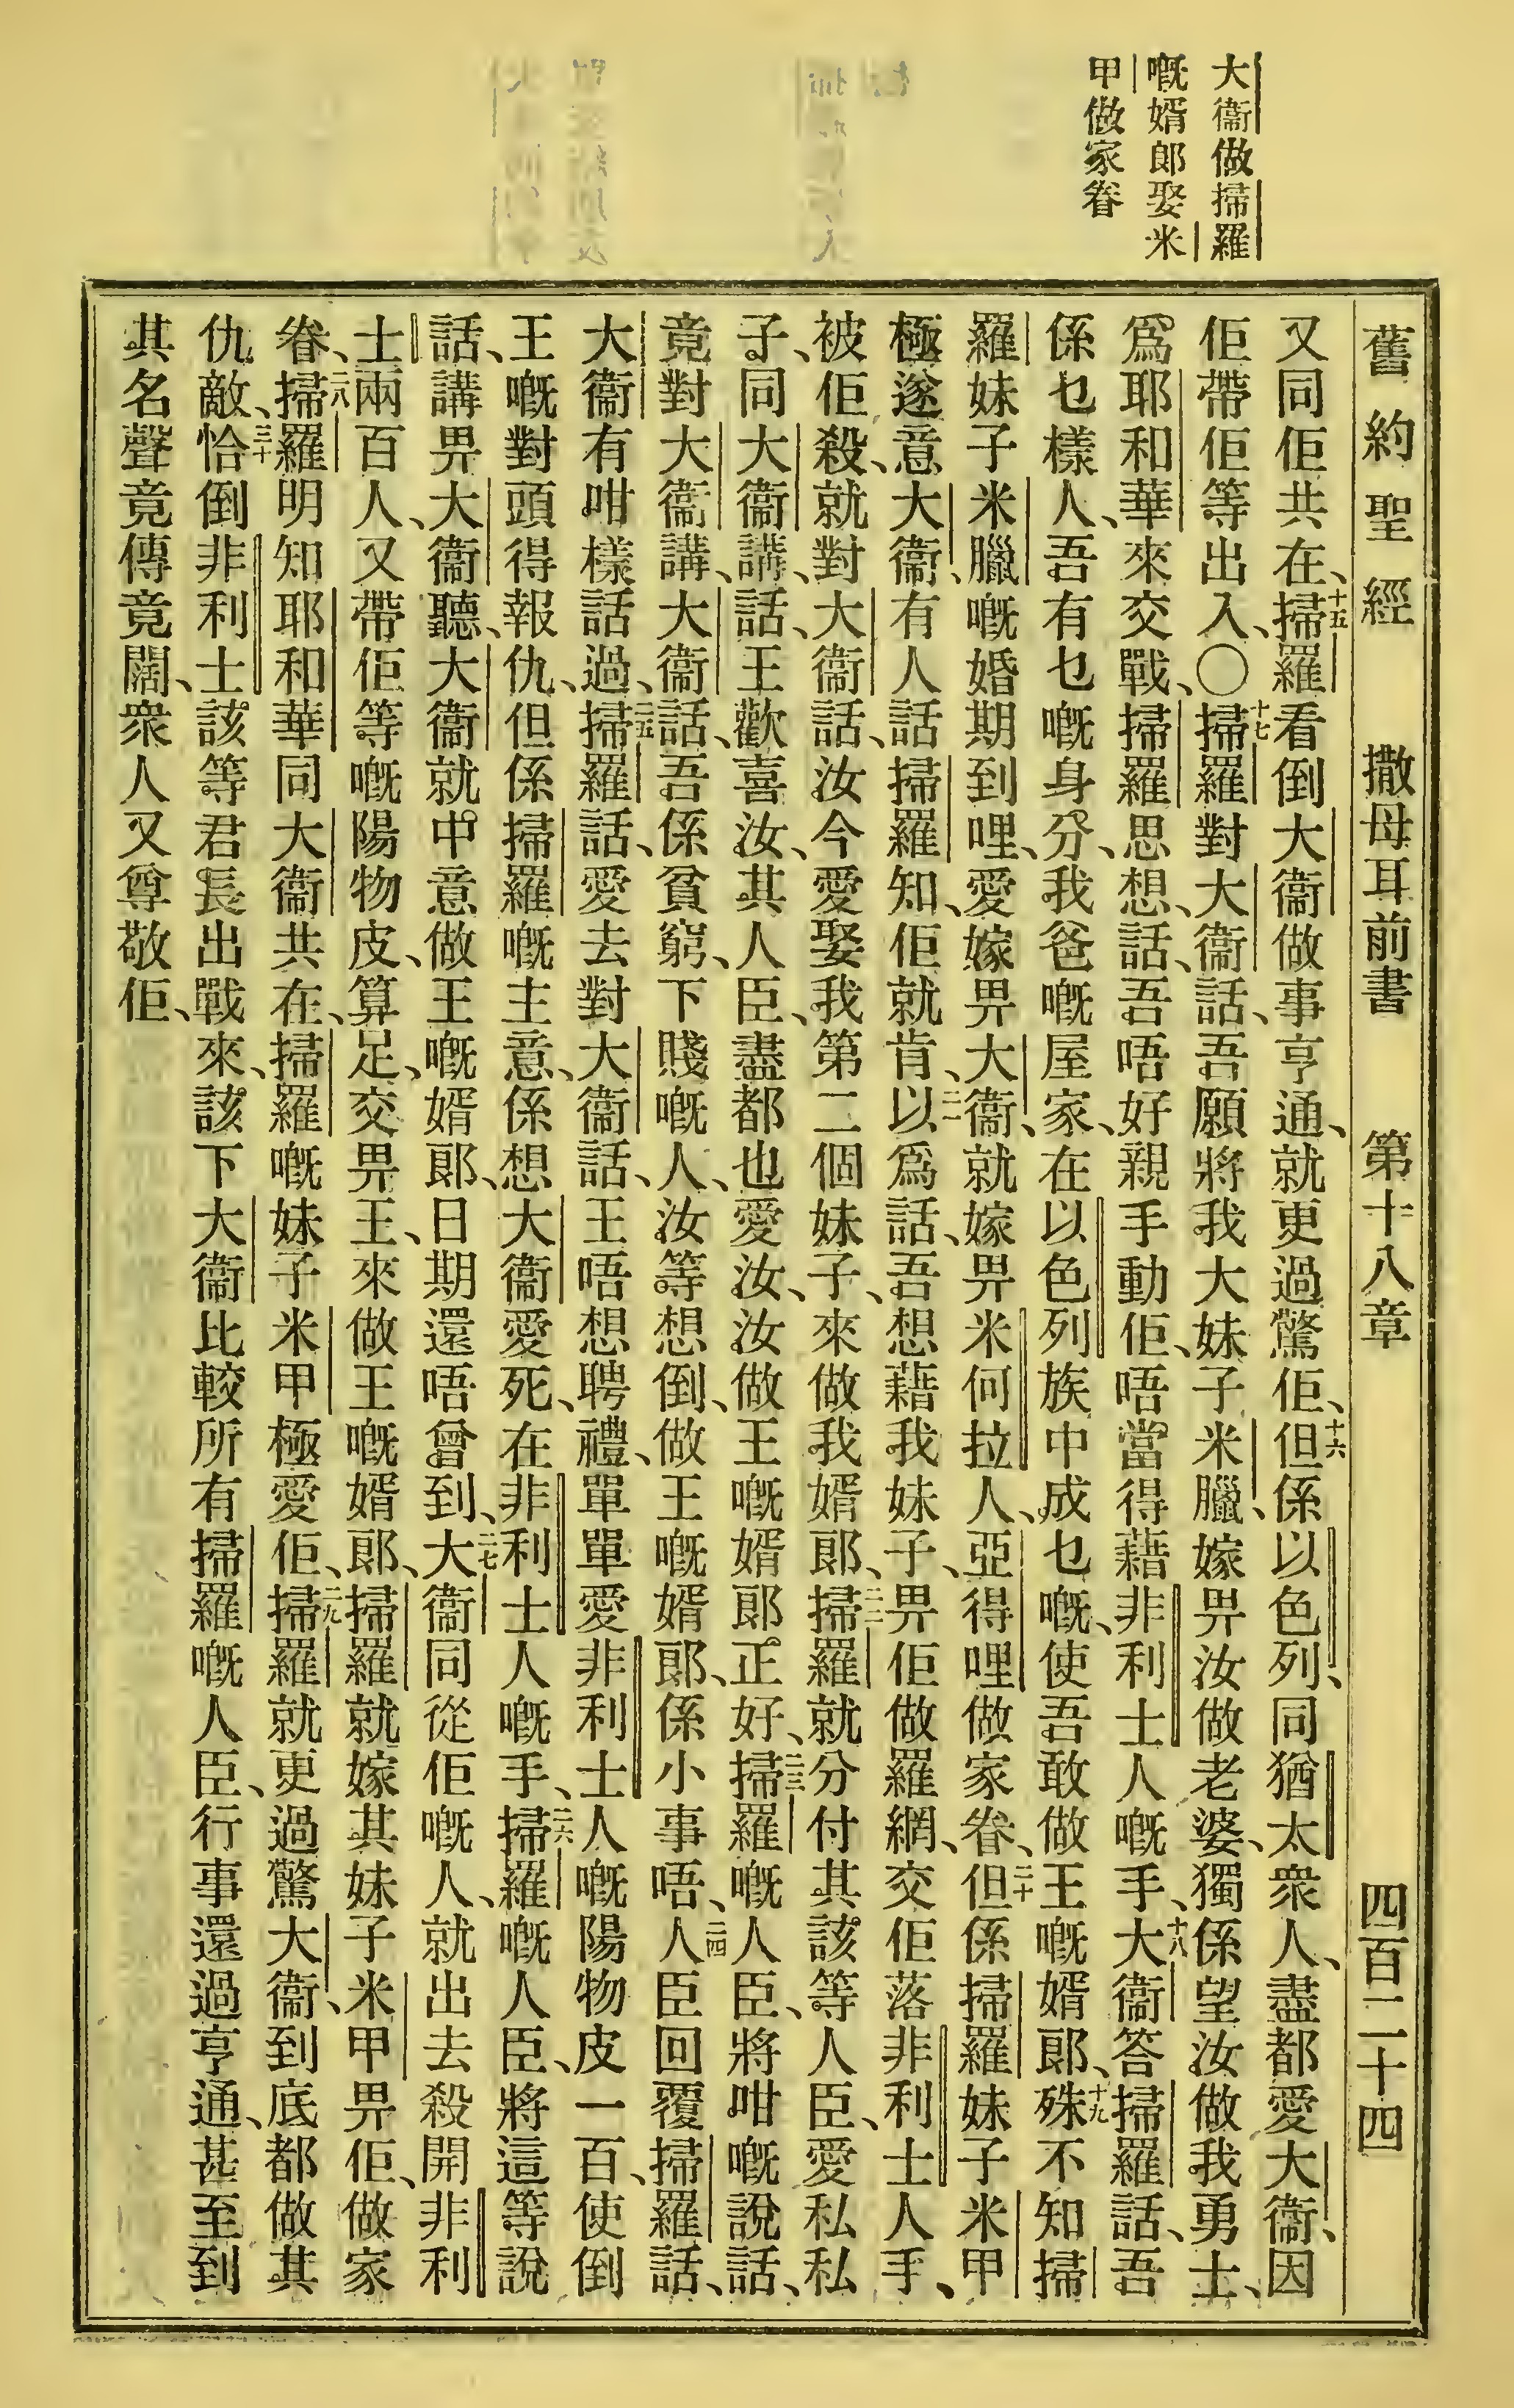 大衞做掃羅
嘅婿郎娶米
甲做家眷
舊約聖經 撒母耳前書 第十八章 四百二十四
又同佢共在、十五掃羅看倒大衞做事亨通、就更過驚佢、十六但係以色列、同猶太衆人、盡都愛大衞、因
佢帶佢等出入、〇十七掃羅對大衞話、吾願將我大妹子米臘、嫁畀汝做老婆、獨係望汝做我勇士、
爲耶和華來交戰、掃羅思想、話、吾唔好親手動佢、唔當得藉非利士人嘅手、十八大衞答掃羅話、吾
係乜樣人、吾有乜嘅身分、我爸嘅屋家、在以色列族中成乜嘅、使吾敢做王嘅婿郎、十九殊不知掃
羅妹子米臘嘅婚期到哩、愛嫁畀大衞、就嫁畀米何拉人、亞得哩做家眷、二十但係掃羅妹子米甲
極遂意大衞、有人話掃羅知、佢就肯、二一以爲話、吾想藉我妹子、畀佢做羅網、交佢落非利士人手、
被佢殺、就對大衞話、汝今愛娶我第二個妹子、來做我婿郎、二二掃羅就分付其該等人臣、愛私私
子、同大衞講、話、王歡喜汝、其人臣、盡都也愛汝、汝做王嘅婿郎正好、二三掃羅嘅人臣、將咁嘅說話、
竟對大衞講、大衞話、吾係貧窮、下賤嘅人、汝等想倒、做王嘅婿郎、係小事唔、二四人臣回覆掃羅話、
大衞有咁樣話過、二五掃羅話、愛去對大衞話、王唔想聘禮、單單愛非利士人嘅陽物皮一百、使倒
王嘅對頭得報仇、但係掃羅嘅主意、係想大衞愛死、在非利士人嘅手、二六掃羅嘅人臣、將這等說
話、講畀大衞聽、大衞就中意做王嘅婿郎、日期還唔曾到、二七大衞同從佢嘅人、就出去殺開非利
士兩百人、又帶佢等嘅陽物皮、算足、交畀王、來做王嘅婿郎、掃羅就嫁其妹子米甲畀佢、做家
眷、二八掃羅明知耶和華同大衞共在、掃羅嘅妹子米甲極愛佢、二九掃羅就更過驚大衞、到底都做其
仇敵、三十恰倒非利士該等君長出戰來、該下大衞比較所有掃羅嘅人臣、行事還過亨通、甚至到
其名聲竟傳竟闊、衆人又尊敬佢、